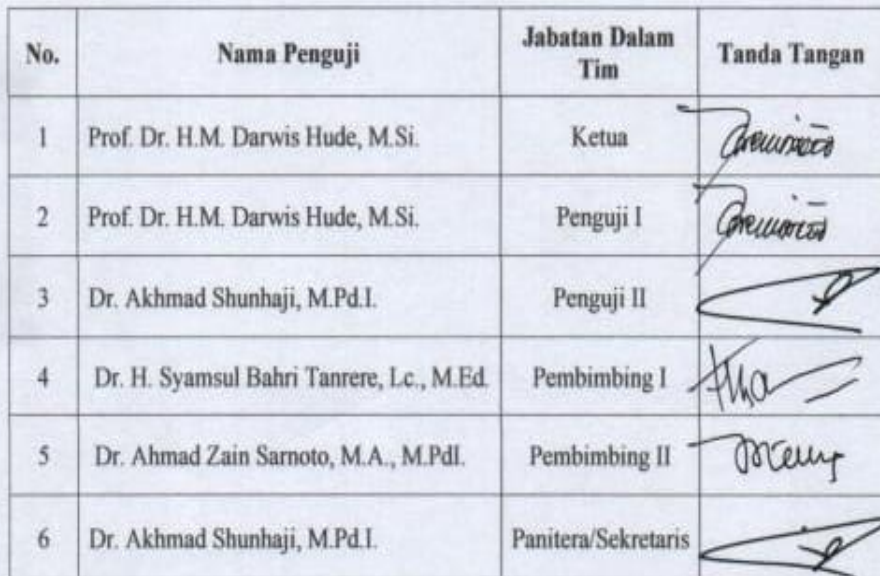 No. Nama Penguji Jabatan Dalam Tim Tanda Tangan
1 Prof. Dr. H.M. Darwis Hude, M.Si. Ketua
2 Prof. Dr. H.M. Darwis Hude, M.Si. Penguji I
3 Dr. Akhmad Shunhaji, M.Pd.I. Penguji II
4 Dr. H. Syamsul Bahri Tanrere, Lc., M.Ed. Pembimbing I
5 Dr. Ahmad Zain Sarnoto, M.A., M.PdI. Pembimbing II
6 Dr. Akhmad Shunhaji, M.Pd.I. Panitera/Sekretaris